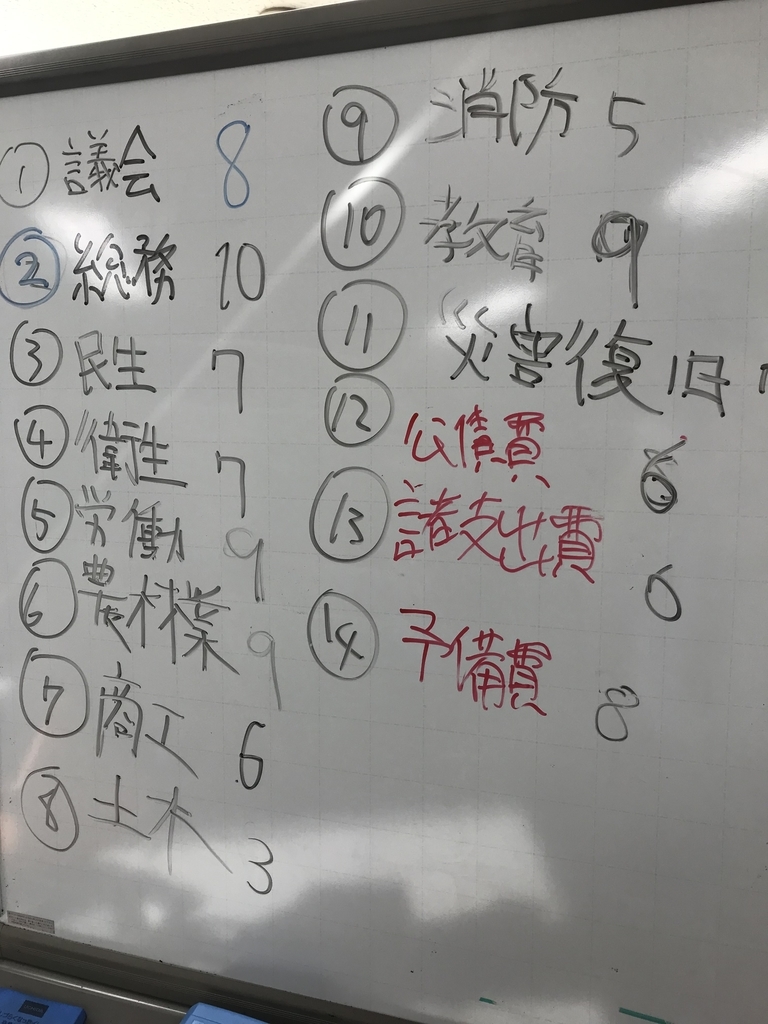 ① 議会 8
② 総務 10
③ 民生 7
④ 衛生 7
⑤ 労働 9
⑥ 農林業 9
⑦ 商工 6
⑧ 土木 3
⑨ 消防 5
⑩ 教育 9
⑪ 災害復旧
⑫ 公債費 6
⑬ 諸支出費 6
⑭ 予備費 8